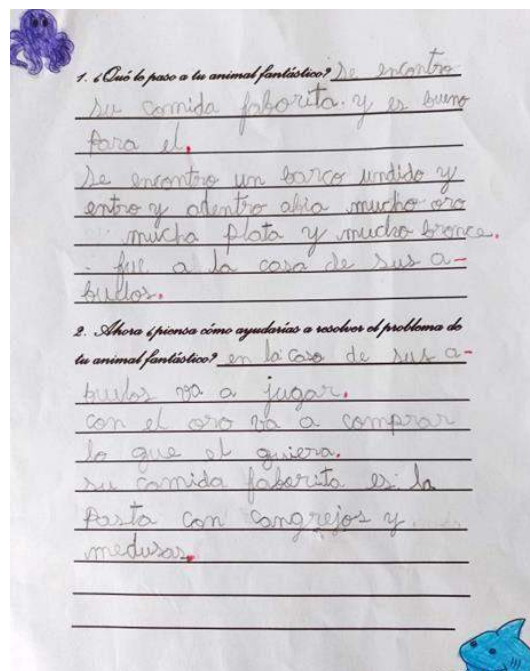 1. ¿Qué le paso a tu animal fantástico? Se encontro
su comida faborita. y es bueno
Para el.
Se encontro un barco undido y
entro y adentro abia mucho oro
mucha plata y mucho bronce.
fue a la casa de sus a-
buelos.
2. Ahora ¿piensa cómo ayudarías a resolver el problema de
tu animal fantástico? en la casa de sus a-
buelos va a jugar.
con el oro va a comprar
lo que el quiera.
su comida faborita es la
Pasta con cangrejos y
medusas.